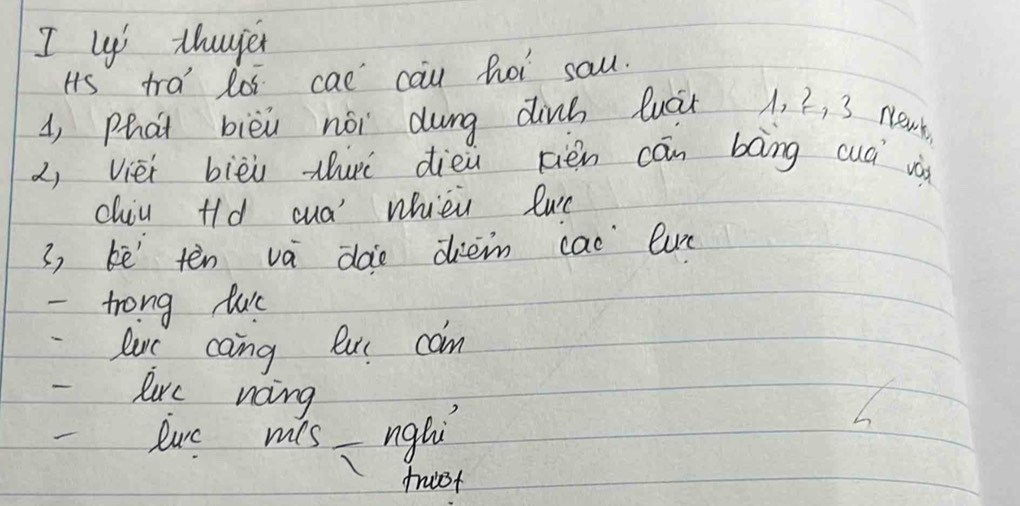 I lý thuyết
HS trả lời các câu hỏi sau.
1, phát biểu nội dung định luật 1, 2, 3 Newton
2, viết biểu thức điều kiện cân bằng của vật
chịu td của nhiều lực
3, kể tên và đặc điểm các lực
- trọng lực
- lực căng lực cản
- lực nâng
- lực ms - nghỉ
trượt